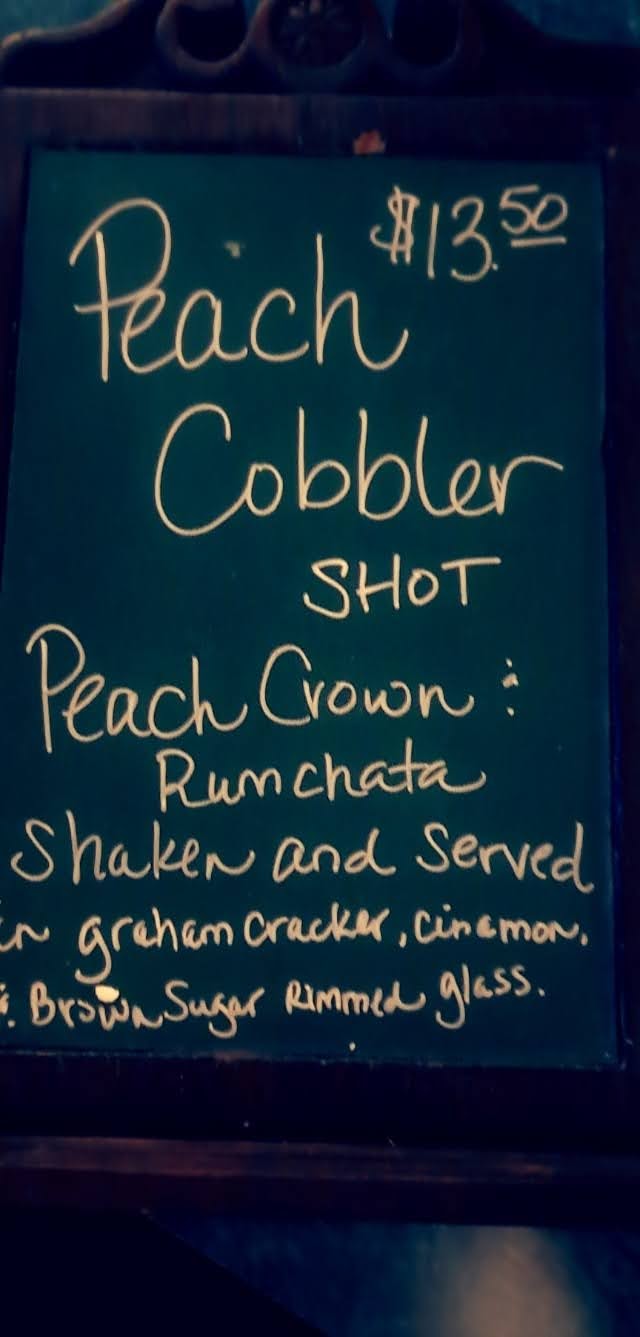 $13.50
Peach
Cobbler
SHOT
Peach Crown &
Rumchata
Shaken and Served
in graham cracker, cinamon,
&. Brown Sugar Rimmed glass.